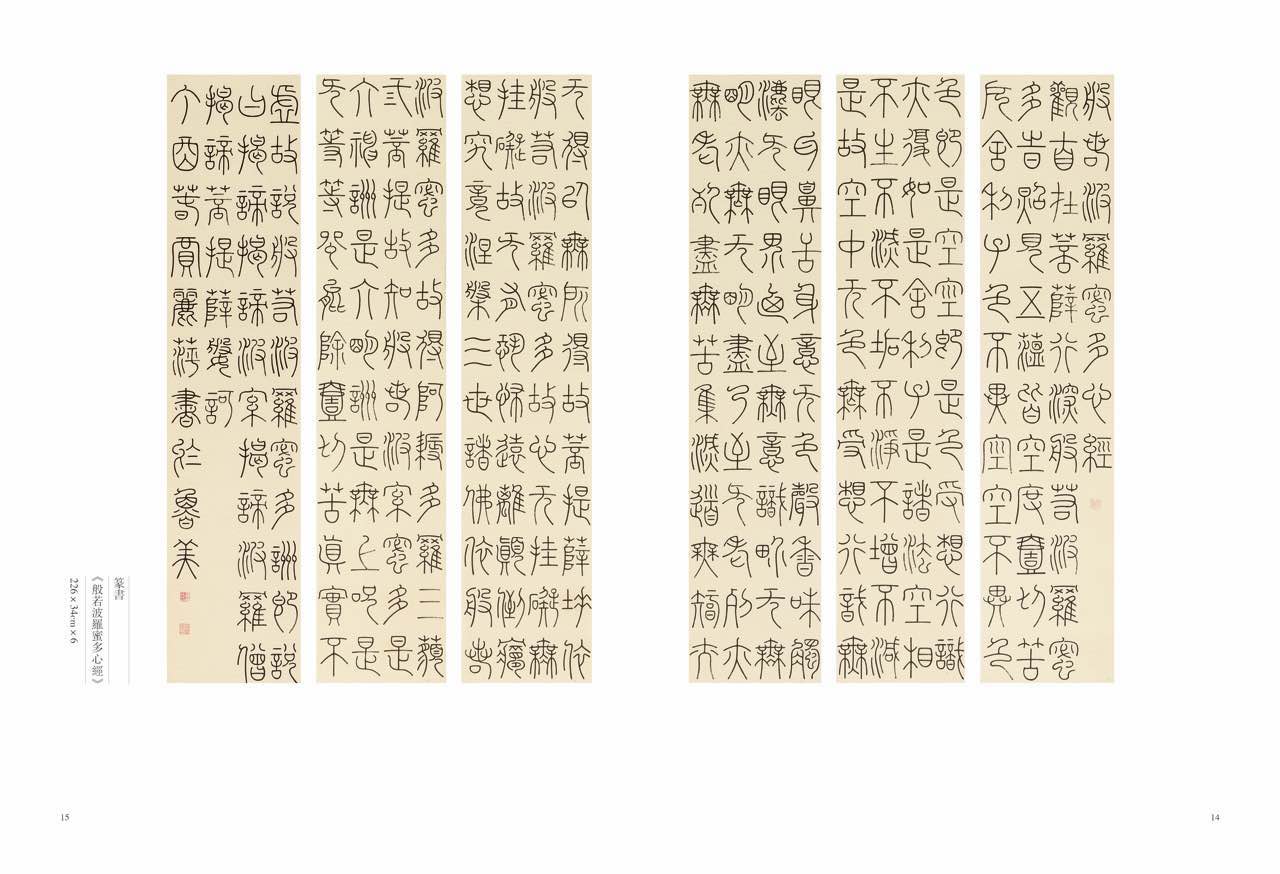 般若波羅蜜多心經
觀自在菩薩行深般若波羅蜜
多時照見五蘊皆空度壹切苦
厄舍利子色不異空空不異色
色即是空空即是色受想行識
亦復如是舍利子是諸法空相
不生不滅不垢不淨不增不減
是故空中无色無受想行識無
眼耳鼻舌身意无色聲香味觸
法无眼界乃至無意識界无無
明亦無无明盡乃至无老死亦
無老死盡無苦集滅道無智亦
无得以無所得故菩提薩埵依
般若波羅蜜多故心无挂礙無
挂礙故无有恐怖遠離顛倒夢
想究竟涅槃三世諸佛依般若
波羅蜜多故得阿耨多羅三藐
弎菩提故知般若波羅蜜多是
大神詶是大明詶是無上呪是
无等等呪能除壹切苦真實不
虛故說般若波羅蜜多詶即說
曰揭諦揭諦波羅揭諦波羅僧
揭諦菩提薩婆訶
丁酉春賈麗萍書於魯美
篆書
《般若波羅蜜多心經》
226×34cm×6
14
15